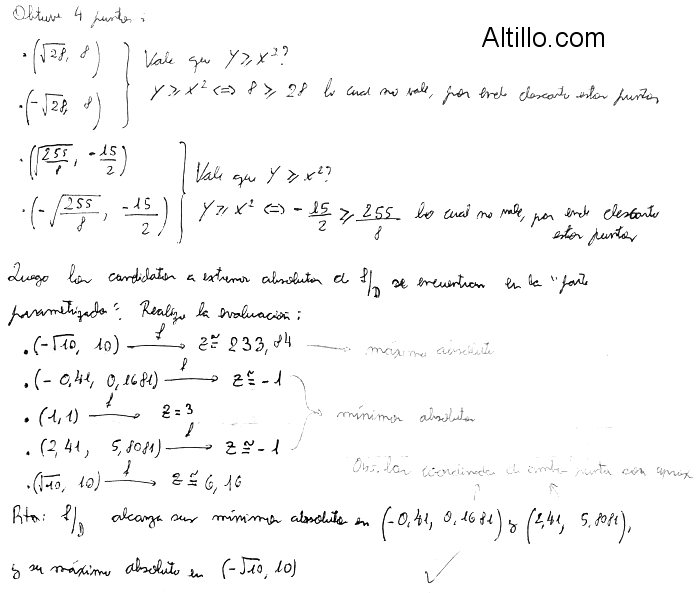 Altillo.com
Obtuve 4 puntos:
· (√28, 8)
· (-√28, 8)
Vale que Y ≥ X²?
Y ≥ X² ⇔ 8 ≥ 28 lo cual no vale, por ende descarto estos puntos
· (√(255/8), -15/2)
· (-√(255/8), -15/2)
Vale que Y ≥ X²?
Y ≥ X² ⇔ -15/2 ≥ 255/8 lo cual no vale, por ende descarto
estos puntos
Luego los candidatos a extremos absolutos d f/D se encuentran en la "parte
parametrizada". Realizo la evaluación:
· (-√10, 10) —f→ z ≅ 233,84 → máximo absoluto
· (-0,41, 0,1681) —f→ z ≅ -1
· (1,1) —f→ z = 3
· (2,41, 5,8081) —f→ z ≅ -1
→ mínimos absolutos
· (√10, 10) —f→ z ≅ 6,16
Obs. las coordenadas d ambos puntos son aprox
Rta: f/D alcanza sus mínimos absolutos en (-0,41, 0,1681) y (2,41, 5,8081),
y su máximo absoluto en (-√10, 10)
✓